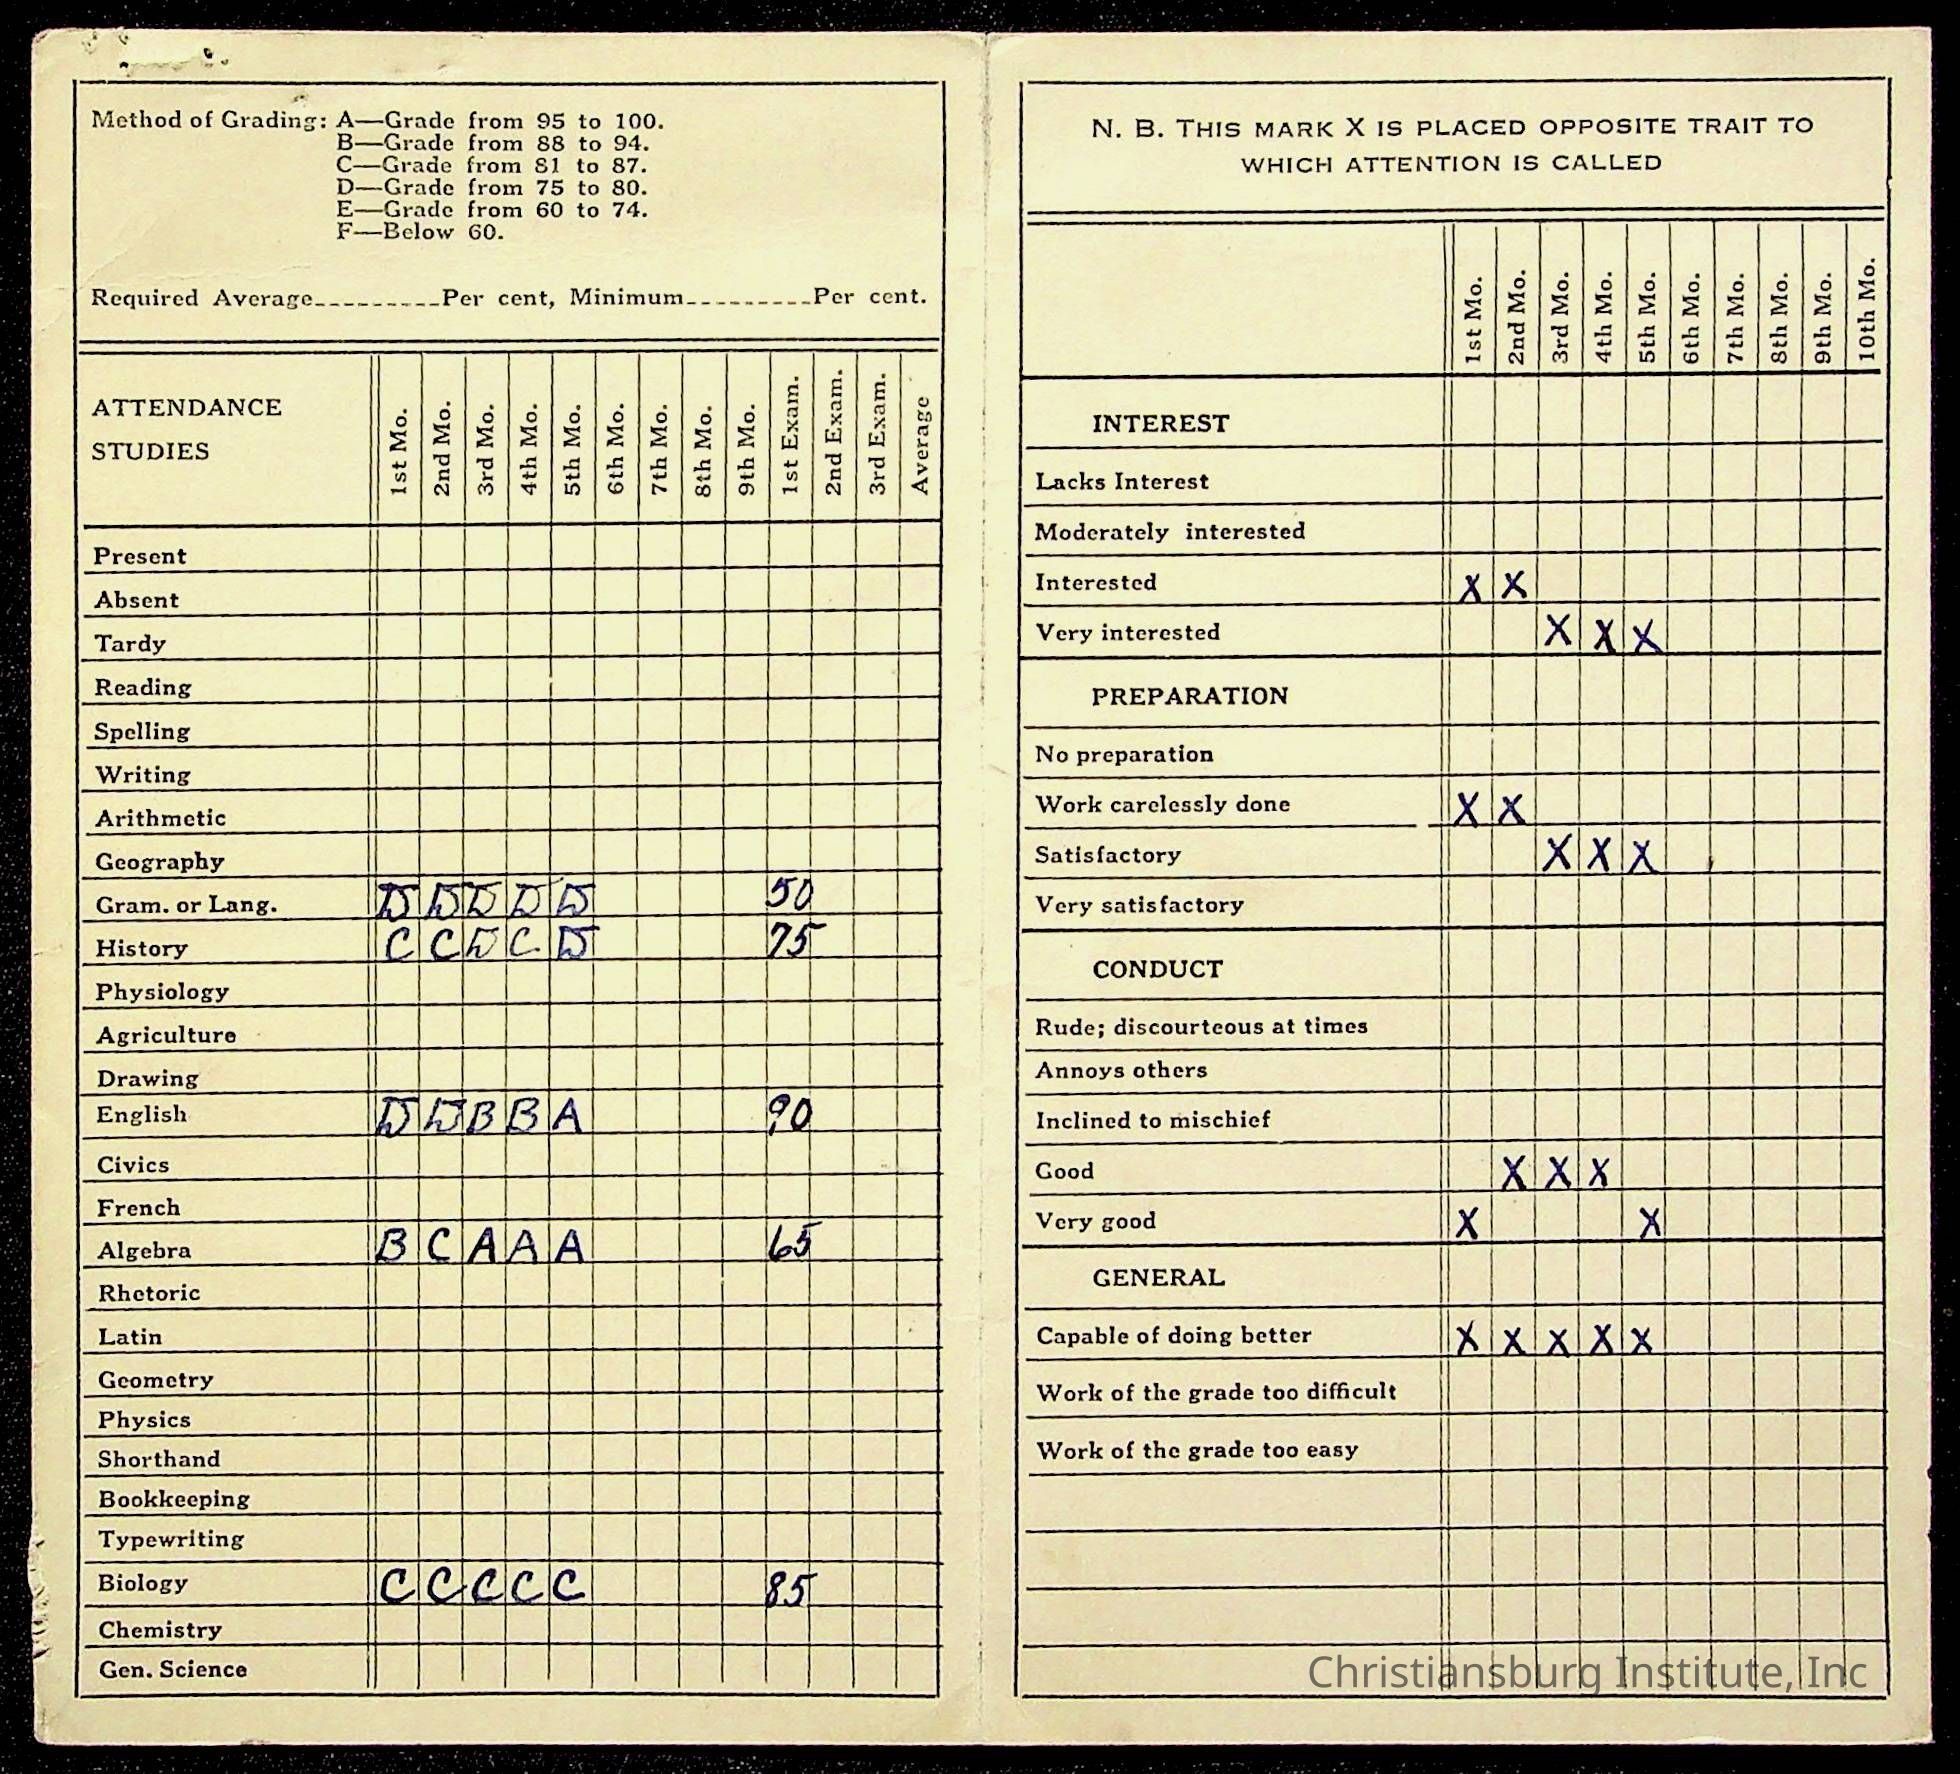 Method of Grading: A—Grade from 95 to 100.
B—Grade from 88 to 94.
C—Grade from 81 to 87.
D—Grade from 75 to 80.
E—Grade from 60 to 74.
F—Below 60.
Required Average_________Per cent, Minimum_________Per cent.
ATTENDANCE
STUDIES
1st Mo. 2nd Mo. 3rd Mo. 4th Mo. 5th Mo. 6th Mo. 7th Mo. 8th Mo. 9th Mo. 1st Exam. 2nd Exam. 3rd Exam. Average
Present
Absent
Tardy
Reading
Spelling
Writing
Arithmetic
Geography
Gram. or Lang. D D D D D 50
History C C D C D 75
Physiology
Agriculture
Drawing
English D D B B A 90
Civics
French
Algebra B C A A A 65
Rhetoric
Latin
Geometry
Physics
Shorthand
Bookkeeping
Typewriting
Biology C C C C C 85
Chemistry
Gen. Science
N. B. THIS MARK X IS PLACED OPPOSITE TRAIT TO
WHICH ATTENTION IS CALLED
1st Mo. 2nd Mo. 3rd Mo. 4th Mo. 5th Mo. 6th Mo. 7th Mo. 8th Mo. 9th Mo. 10th Mo.
INTEREST
Lacks Interest
Moderately interested
Interested X X
Very interested X X X
PREPARATION
No preparation
Work carelessly done X X
Satisfactory X X X
Very satisfactory
CONDUCT
Rude; discourteous at times
Annoys others
Inclined to mischief
Good X X X
Very good X X
GENERAL
Capable of doing better X X X X X
Work of the grade too difficult
Work of the grade too easy
Christiansburg Institute, Inc